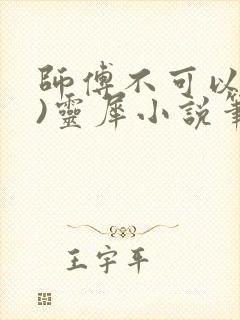 師傅不可以
)靈犀小説筆
王宇平